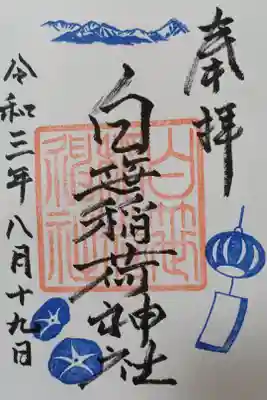 奉拝
白笹稲荷神社
令和三年八月十九日
白笹稲荷神社